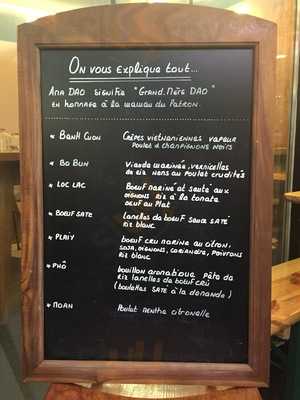 On vous explique tout...
Ana DAO signifie "Grand-Mère DAO"
en hommage à la maman du Patron.
* Banh Cuon Crêpes vietnamiennes vapeur
Poulet & champignons noirs
* Bo Bun Viande marinée, vermicelles
de riz nems au Poulet crudités
* Loc Lac Boeuf mariné et sauté aux
oignons riz à la tomate
oeuf au Plat
* Boeuf Saté Lanelles de boeuf sauce saté
Riz blanc
* Pleiy boeuf cru mariné au citron,
soja, oignons, coriandre, poivrons
Riz blanc
* Phô bouillon aromatique Pâte de
riz lanelles de boeuf cru
(boulettes saté à la demande)
* Moan Poulet menthe citronelle